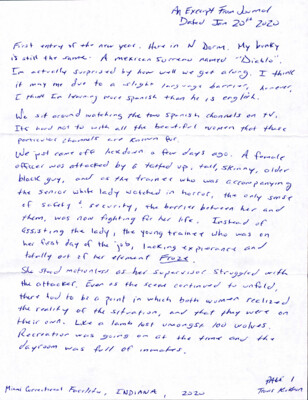 An Excerpt From Journal
Dated Jan 20th 2020
First entry of the new year. Here in N Dorm. My bunky
is still the same. A mexican supreano named "Diablo".
Im actually surprised by how well we get along. I think
it may be due to a slight language barrier, however,
I think Im learning more spanish than he is english.
We sit around watching the two spanish channels on TV.
Its hard not to with all the beautiful women that those
particular channels are known for.
We just came off lockdown a few days ago. A female
officer was attacked by a tatted up, tall, skinny, older
black guy, and as the trainee who was accompanying
the senior white lady watched in horror, the only sense
of safety & security, the barrier between her and
them, was now fighting for her life. Instead of
assisting the lady, the young trainee who was on
her first day of the job, lacking experience and
totally out of her element Froze.
She stood motionless as her supervisor struggled with
the attacker. Even as the scene continued to unfold,
there had to be a point in which both women realized
the reality of the situation, and that they were on
their own. Like a lamb lost amongst 100 wolves.
Recreation was going on at the time and the
dayroom was full of inmates.
PAGE 1
Miami Correctional Facility, INDIANA, 2020